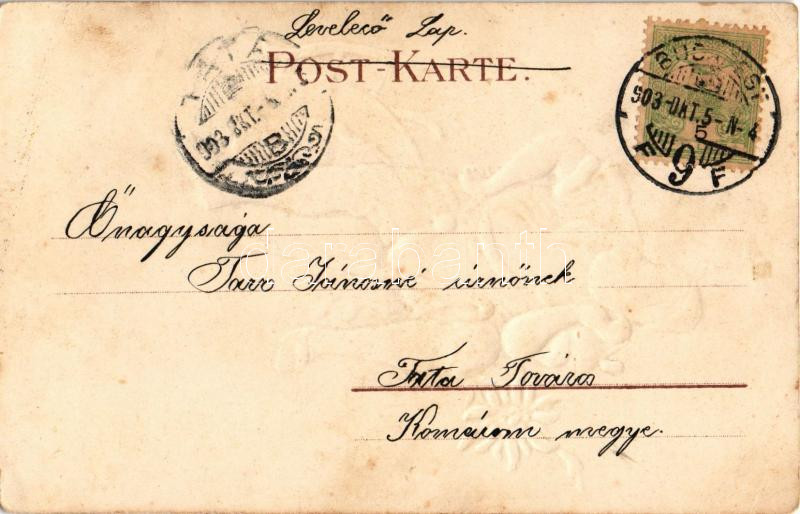 Levelező Lap.
POST-KARTE.
TATA
903 OKT.
B
BUDAPEST
903-OKT.5-N-4
5
F 9 F
Őnagysága
Tarr Jánosné úrnőnek
Tata Továros
Komárom megye.
databanth